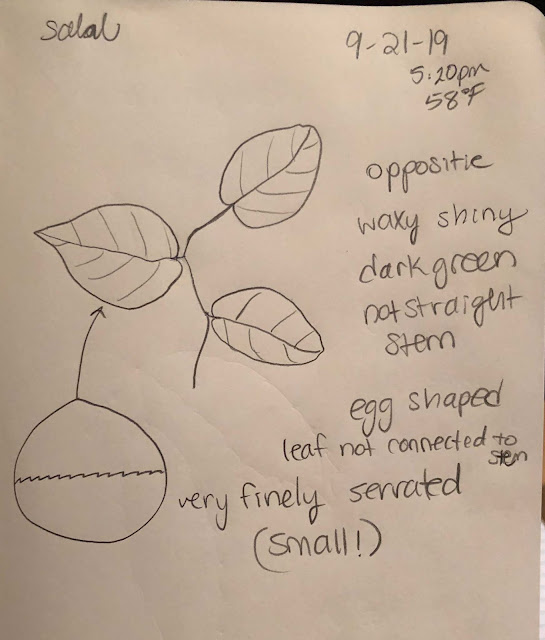 salal
9-21-19
5:20pm
58°F
oppositie
waxy shiny
dark green
not straight
stem
egg shaped
leaf not connected to
stem
very finely serrated
(small!)